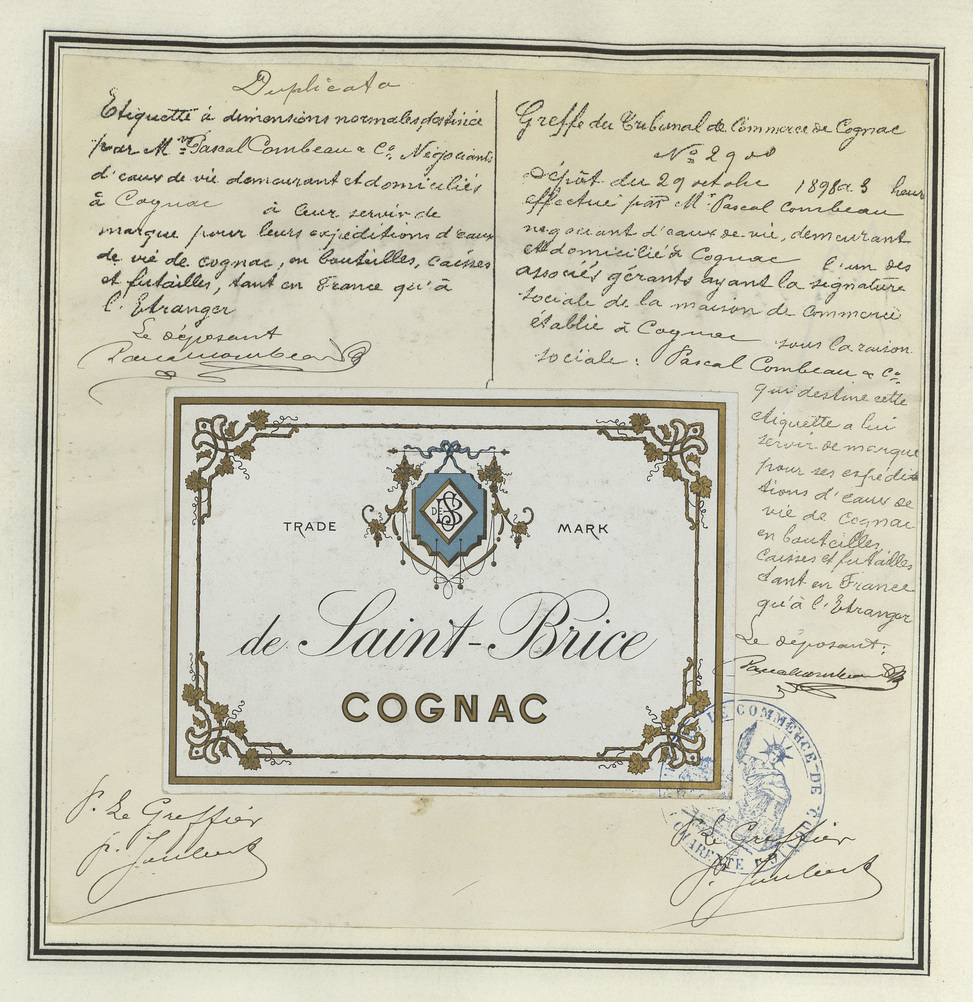 Duplicata
Etiquette à dimensions normales destinée
par Mrs Pascal Combeau & Co. Négociants
d'eaux de vie demeurant et domiciliés
à Cognac à leur servir de
marque pour leurs expéditions d'eaux
de vie de cognac, en bouteilles, caisses
et futailles, tant en France qu'à
l'Etranger
Le déposant
Pascal Combeau
Greffe du Tribunal de Commerce de Cognac
No 2900
Dépôt du 29 octobre 1898 à 3 heur
effectué par Mr Pascal Combeau
négociant d'eaux-de-vie, demeurant
et domicilié à Cognac l'un des
associés gérants ayant la signature
sociale de la maison de commerce
établie à Cognac sous la raison
sociale : Pascal Combeau & Co
qui destine cette
étiquette a lui
servir de marque
pour ses expédi
tions d'eaux de
vie de Cognac
en bouteilles
caisses et futailles
tant en France
qu'à l'Etranger
Le déposant:
Pascal Combeau
DE S B
TRADE MARK
de Saint-Brice
COGNAC
DE COMMERCE DE CO
CHARENTE
P. Le Greffier
P. Le Greffier